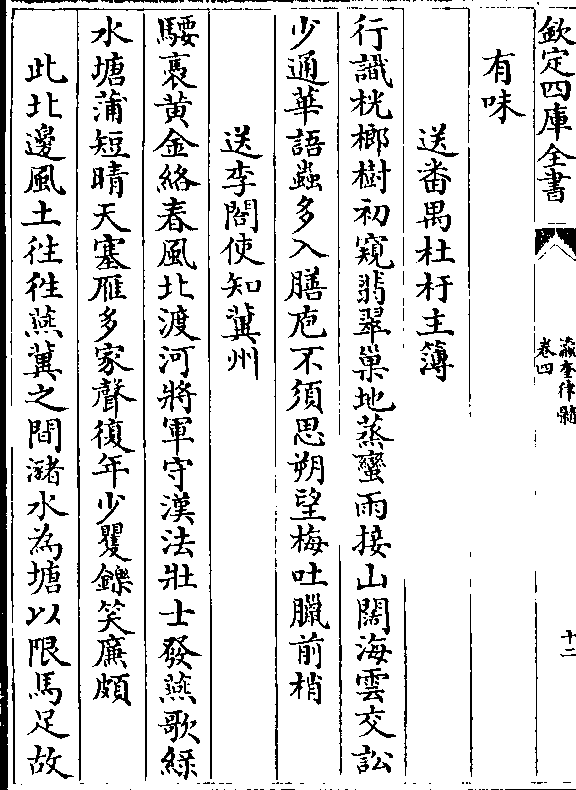 欽定四庫全書
瀛奎律髓
卷四
十二
有味
送番禺杜杅主簿
行識桄榔樹初窺翡翠巢地蒸蠻雨接山闊海雲交訟
少通華語蟲多入膳庖不須思朔望梅吐臘前梢
送李閤使知冀州
騕褭黄金絡春風北渡河將軍守漢法壯士發燕歌緑
水塘蒲短晴天塞雁多家聲復年少矍鑠笑廉頗
此北邊風土徃徃燕冀之間瀦水為塘以限馬足故